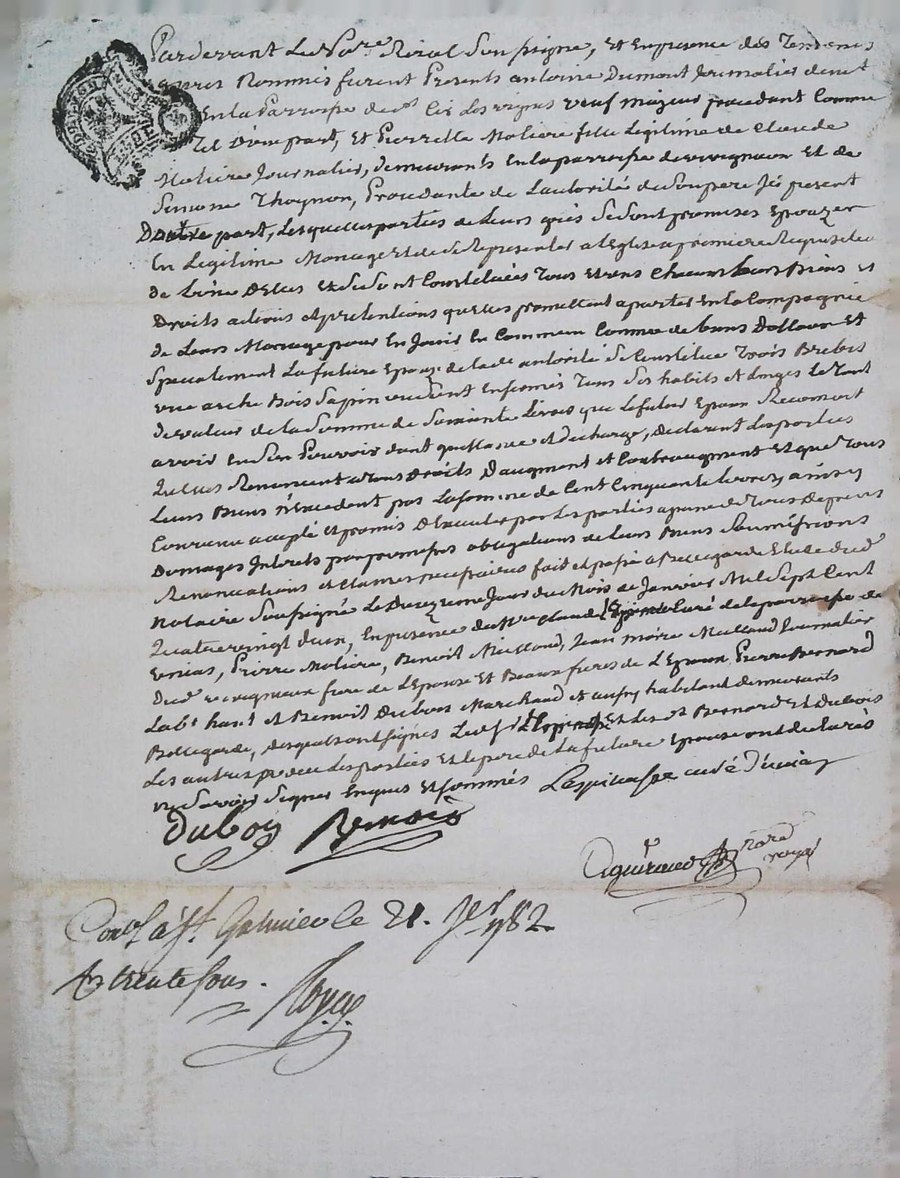 Pardevant Le No.re Roial Soussigné, Et En presence des Temoins
apres Nommés furent Presents antoine Dumont Journalier demt
En la Parroisse de st Cir Les vignes veuf majeur procedant Comme
Tel D'une part, Et Pierrette Moliere fille Legitime de Claude
Moliere Journalier, demeurants En la parroisse de Et de
Simone Thoynon, Procedante de L'autorité de Son pere Jci present
D'autre part, Lesquelles parties de Leurs grés Se Sont promises Epouzer
En Legitime Mariage Et de Se Representer a L'Eglise a premiere Requise de
de L'une D'elles Et Se Sont Constituées Tous Et uns Chacuns Leurs Biens Et
Droits actions Et pretentions qu'elles promettent aporter En La Compagnie
de Leurs Mariage pour En Jouir En Commun Comme de biens Et
Specialement La future Epouze de lad.e autorité Se Constitue Trois Brebis
une arche Bois Sapin Enfermés Tous Ses habits Et Linges Le Tout
de valeur de la Somme de Soixante Livres que Le futur Epoux Reconnoit
avoir En Son Pouvoir dont quittance Et decharge, declarent Les parties
qu'elles Renoncent a Tous Droits D'augment Et Contraugment Et que Tous
Leurs Biens N'Excedent pas La Somme de Cent Cinquante Livres ainsy
Convenu accepté Et promis D'Executer par Les parties a peine de Tous Depens
Domages Interets par promesses obligations de Leurs Biens Soumissions
Renonciations Et Clauses necessaires fait Et passé a Bellegarde Etude dud.
Notaire Soussigné Le Jour du Mois de Janvier Mil Sept Cent
Quatre vingt deux, En presence de Curé de la parroisse de
Pierre Moliere, Benoit Milland, Jean Milland Journalier
dud. frere de L'Epouse Et Beaux freres de L'Epoux Pierre Bernard
Lab.r Et Benoit Dubois Marchand Et habitant demeurants
Bellegarde, Lesquels ont Signés Et Les sr Bernard Et Dubois
Les autres parties Et Le pere de La future Epouse ont declarés
ne Savoir Signer Enquis Et Sommés Lespinasse curé d'
Duboy
Aguiraud Nore royal
a St. Galmier le 21. Jer 1782
trente Sous.